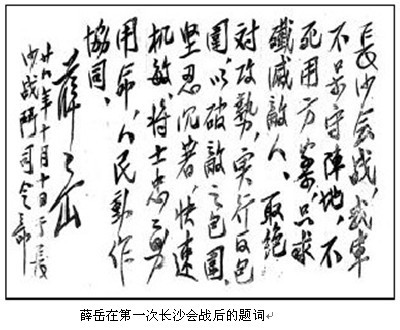 長沙会战,我軍
不只守陣地,不
死用方案,只求
殲滅敵人、取絶
对攻勢,实行反包
圍,以破敵之包圍,
坚忍沉著,快速
机敏,将士忠勇
用命,人民動作
協同,
薛岳
廿八年十月十日于長
沙战鬥司令部
薛岳在第一次长沙会战后的题词